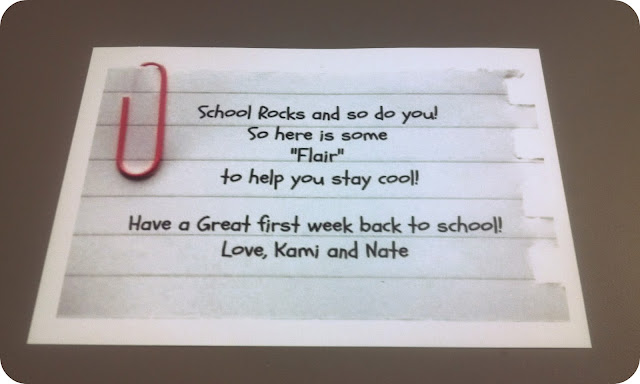 School Rocks and so do you!
So here is some
"Flair"
to help you stay cool!
Have a Great first week back to school!
Love, Kami and Nate